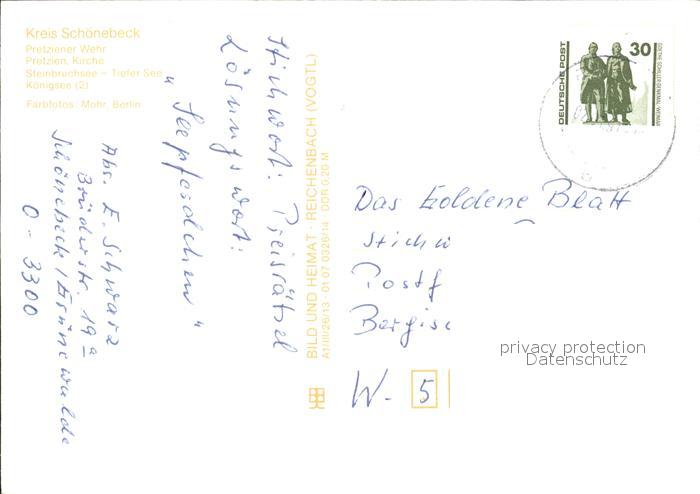 Kreis Schönebeck
Pretziener Wehr
Pretzien, Kirche
Steinbruchsee – Tiefer See
Königsee (2)
Farbfotos: Mohr, Berlin
Stichwort: Preisrätsel
Lösungswort:
"Seepferdchen"
Abs. E. Schwarz
Brüderstr. 19a
Schönebeck/Grünewalde
O-3300
BILD UND HEIMAT · REICHENBACH (VOGTL)
A1/III/26/13 · 01 07 0326/14 · DDR 0,20 M
DEUTSCHE POST
30
GOETHE-SCHILLER-DENKMAL · WEIMAR
Das Goldene Blatt
Stichw
Postf
Bergisc
W- 5
privacy protection
Datenschutz